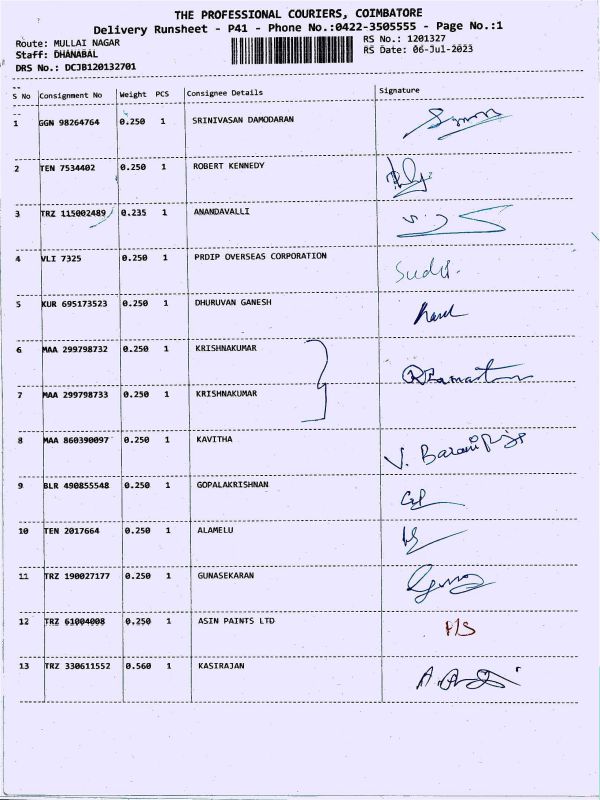 THE PROFESSIONAL COURIERS, COIMBATORE
Delivery Runsheet - P41 - Phone No.:0422-3505555 - Page No.:1
Route: MULLAI NAGAR RS No.: 1201327
Staff: DHANABAL RS Date: 06-Jul-2023
DRS No.: DCJB120132701
S No Consignment No Weight PCS Consignee Details Signature
1 GGN 98264764 0.250 1 SRINIVASAN DAMODARAN
2 TEN 7534402 0.250 1 ROBERT KENNEDY
3 TRZ 115002489 0.235 1 ANANDAVALLI
4 VLI 7325 0.250 1 PRDIP OVERSEAS CORPORATION
5 KUR 695173523 0.250 1 DHURUVAN GANESH
6 MAA 299798732 0.250 1 KRISHNAKUMAR
7 MAA 299798733 0.250 1 KRISHNAKUMAR
8 MAA 860390097 0.250 1 KAVITHA
9 BLR 490855548 0.250 1 GOPALAKRISHNAN
10 TEN 2017664 0.250 1 ALAMELU
11 TRZ 190027177 0.250 1 GUNASEKARAN
12 TRZ 61004008 0.250 1 ASIN PAINTS LTD
13 TRZ 330611552 0.560 1 KASIRAJAN